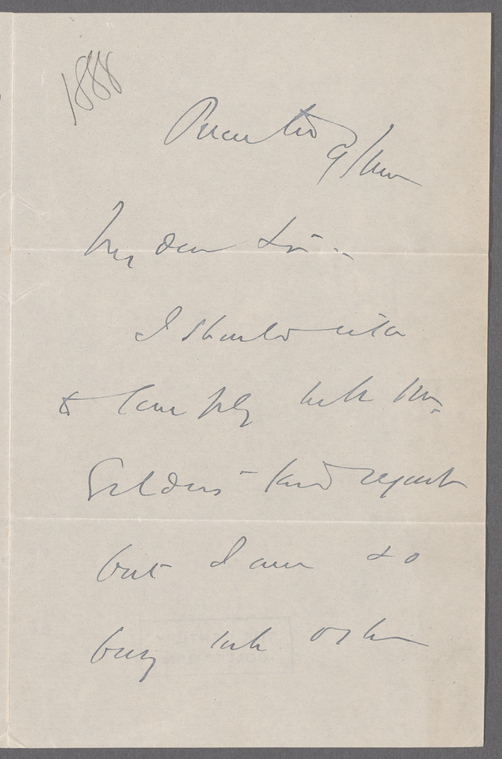 1888
9/Nov
My dear Sir -
I should like
to comply with Mr.
Gilder's kind request
but I am so
busy with other